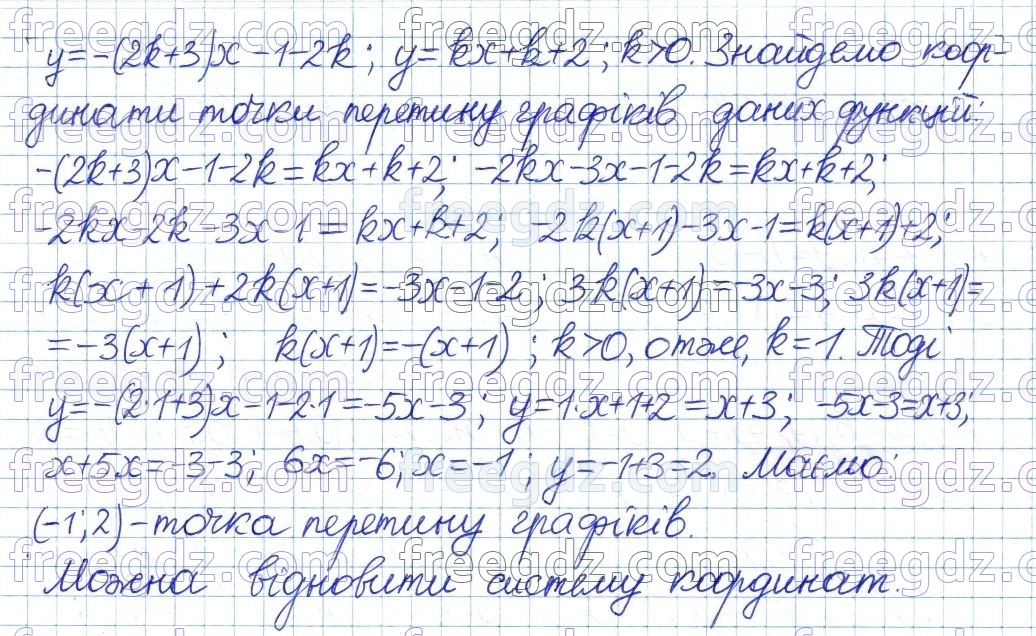 y=-(2k+3)x-1-2k; y=kx+k+2; k>0. Знайдемо коор-
динати точки перетину графіків даних функцій:
-(2k+3)x-1-2k=kx+k+2; -2kx-3x-1-2k=kx+k+2;
-2kx-2k-3x-1=kx+k+2; -2k(x+1)-3x-1=k(x+1)+2;
k(x+1)+2k(x+1)=-3x-1-2; 3k(x+1)=-3x-3; 3k(x+1)=
=-3(x+1); k(x+1)=-(x+1); k>0, отже, k=1. Тоді
y=-(2·1+3)x-1-2·1=-5x-3; y=1·x+1+2=x+3; -5x-3=x+3;
x+5x=-3-3; 6x=-6; x=-1; y=-1+3=2. Маємо:
(-1;2)-точка перетину графіків.
Можна відновити систему координат.
freegdz.com